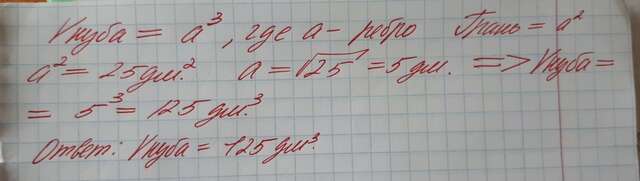 Vкуба = a³, где a - ребро Грань = a²
a² = 25 дм.² a = √25 = 5 дм. => Vкуба =
= 5³ = 125 дм.³
Ответ: Vкуба = 125 дм³.